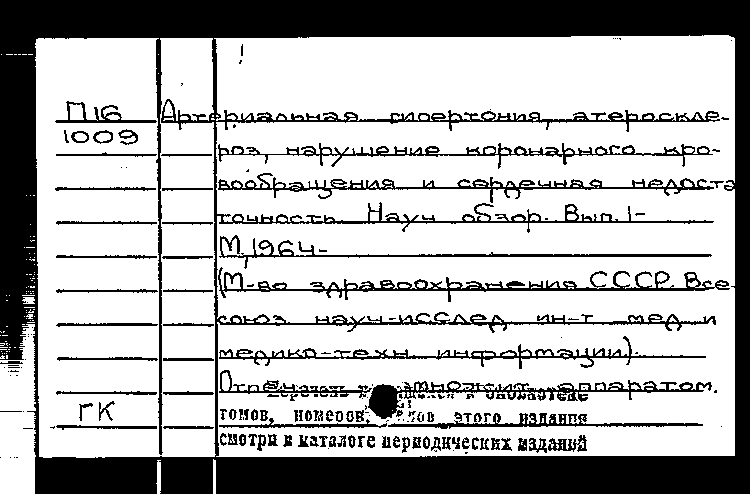 П16 Артериальная гипертония, атероскле-
1009 роз, нарушение коронарного кро-
вообращения и сердечная недоста
точность. Науч. обзор. Вып. 1-
М, 1964-
(М-во здравоохранения СССР. Все
союз. науч-исслед. ин-т мед и
медико-техн информации).
Отпеч множит. аппаратом.
Перечень в библиотеке
ГК томов, номеров, этого издания
смотри в каталоге периодических изданий